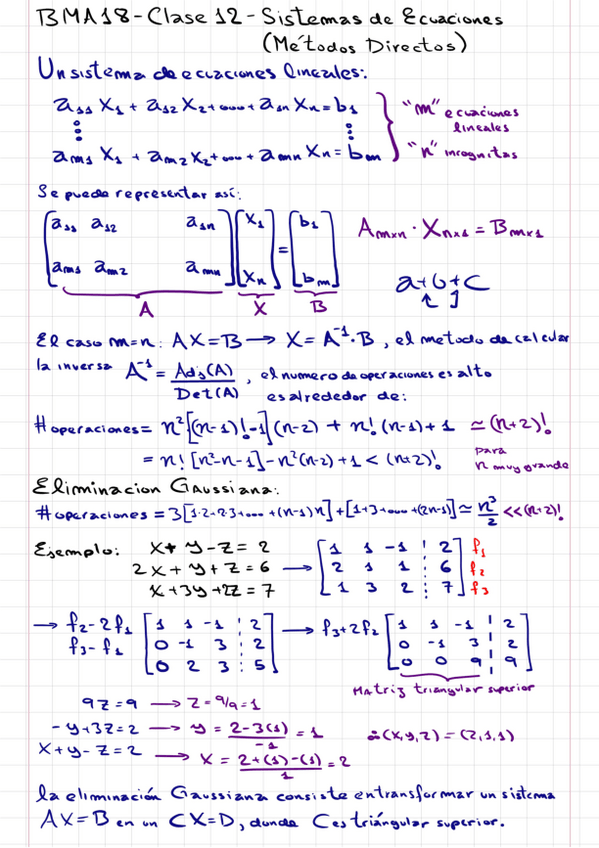 BMA18-Clase 12-Sistemas de Ecuaciones
(Métodos Directos)
Un sistema de ecuaciones lineales:
a₁₁ X₁ + a₁₂ X₂ + ... + a₁ₙ Xₙ = b₁ "m" ecuaciones lineales
⋮ ⋮
aₘ₁ X₁ + aₘ₂ X₂ + ... + aₘₙ Xₙ = bₘ "n" incognitas
Se puede representar así:
[a₁₁ a₁₂ a₁ₙ] [X₁] = [b₁] Aₘₓₙ · Xₙₓ₁ = Bₘₓ₁
[aₘ₁ aₘ₂ aₘₙ] [Xₙ] [bₘ] a+b+c
A X B
El caso m=n: AX=B → X=A⁻¹·B, el metodo de calcular
la inversa A⁻¹ = Adj(A)/Det(A), el numero de operaciones es alto
es alrededor de:
#operaciones = n²[(n-1)!-1](n-2) + n!(n-1)+1 ≃ (n+2)!
= n! [n²-n-1] - n²(n-2)+1 < (n+2)! para n muy grande
Eliminacion Gaussiana:
#operaciones = 3[1·2+2·3+...+(n-1)n]+[1+3+...+(2n-1)] ≃ n³/2 << (n+2)!
Ejemplo: x+y-z=2 [1 1 -1 ⋮ 2] f₁
2x+y+z=6 → [2 1 1 ⋮ 6] f₂
x+3y+2z=7 [1 3 2 ⋮ 7] f₃
→ f₂-2f₁ [1 1 -1 ⋮ 2] → f₃+2f₂ [1 1 -1 ⋮ 2]
f₃-f₁ [0 -1 3 ⋮ 2] [0 -1 3 ⋮ 2]
[0 2 3 ⋮ 5] [0 0 9 ⋮ 9]
Matriz triangular superior
9z=9 → z=9/9=1
-y+3z=2 → y = (2-3(1))/-1 = 1 ∴(x,y,z)=(2,1,1)
x+y-z=2 → x = (2+(1)-(1))/1 = 2
la eliminación Gaussiana consiste en transformar un sistema
AX=B en un CX=D, donde C es triángular superior.